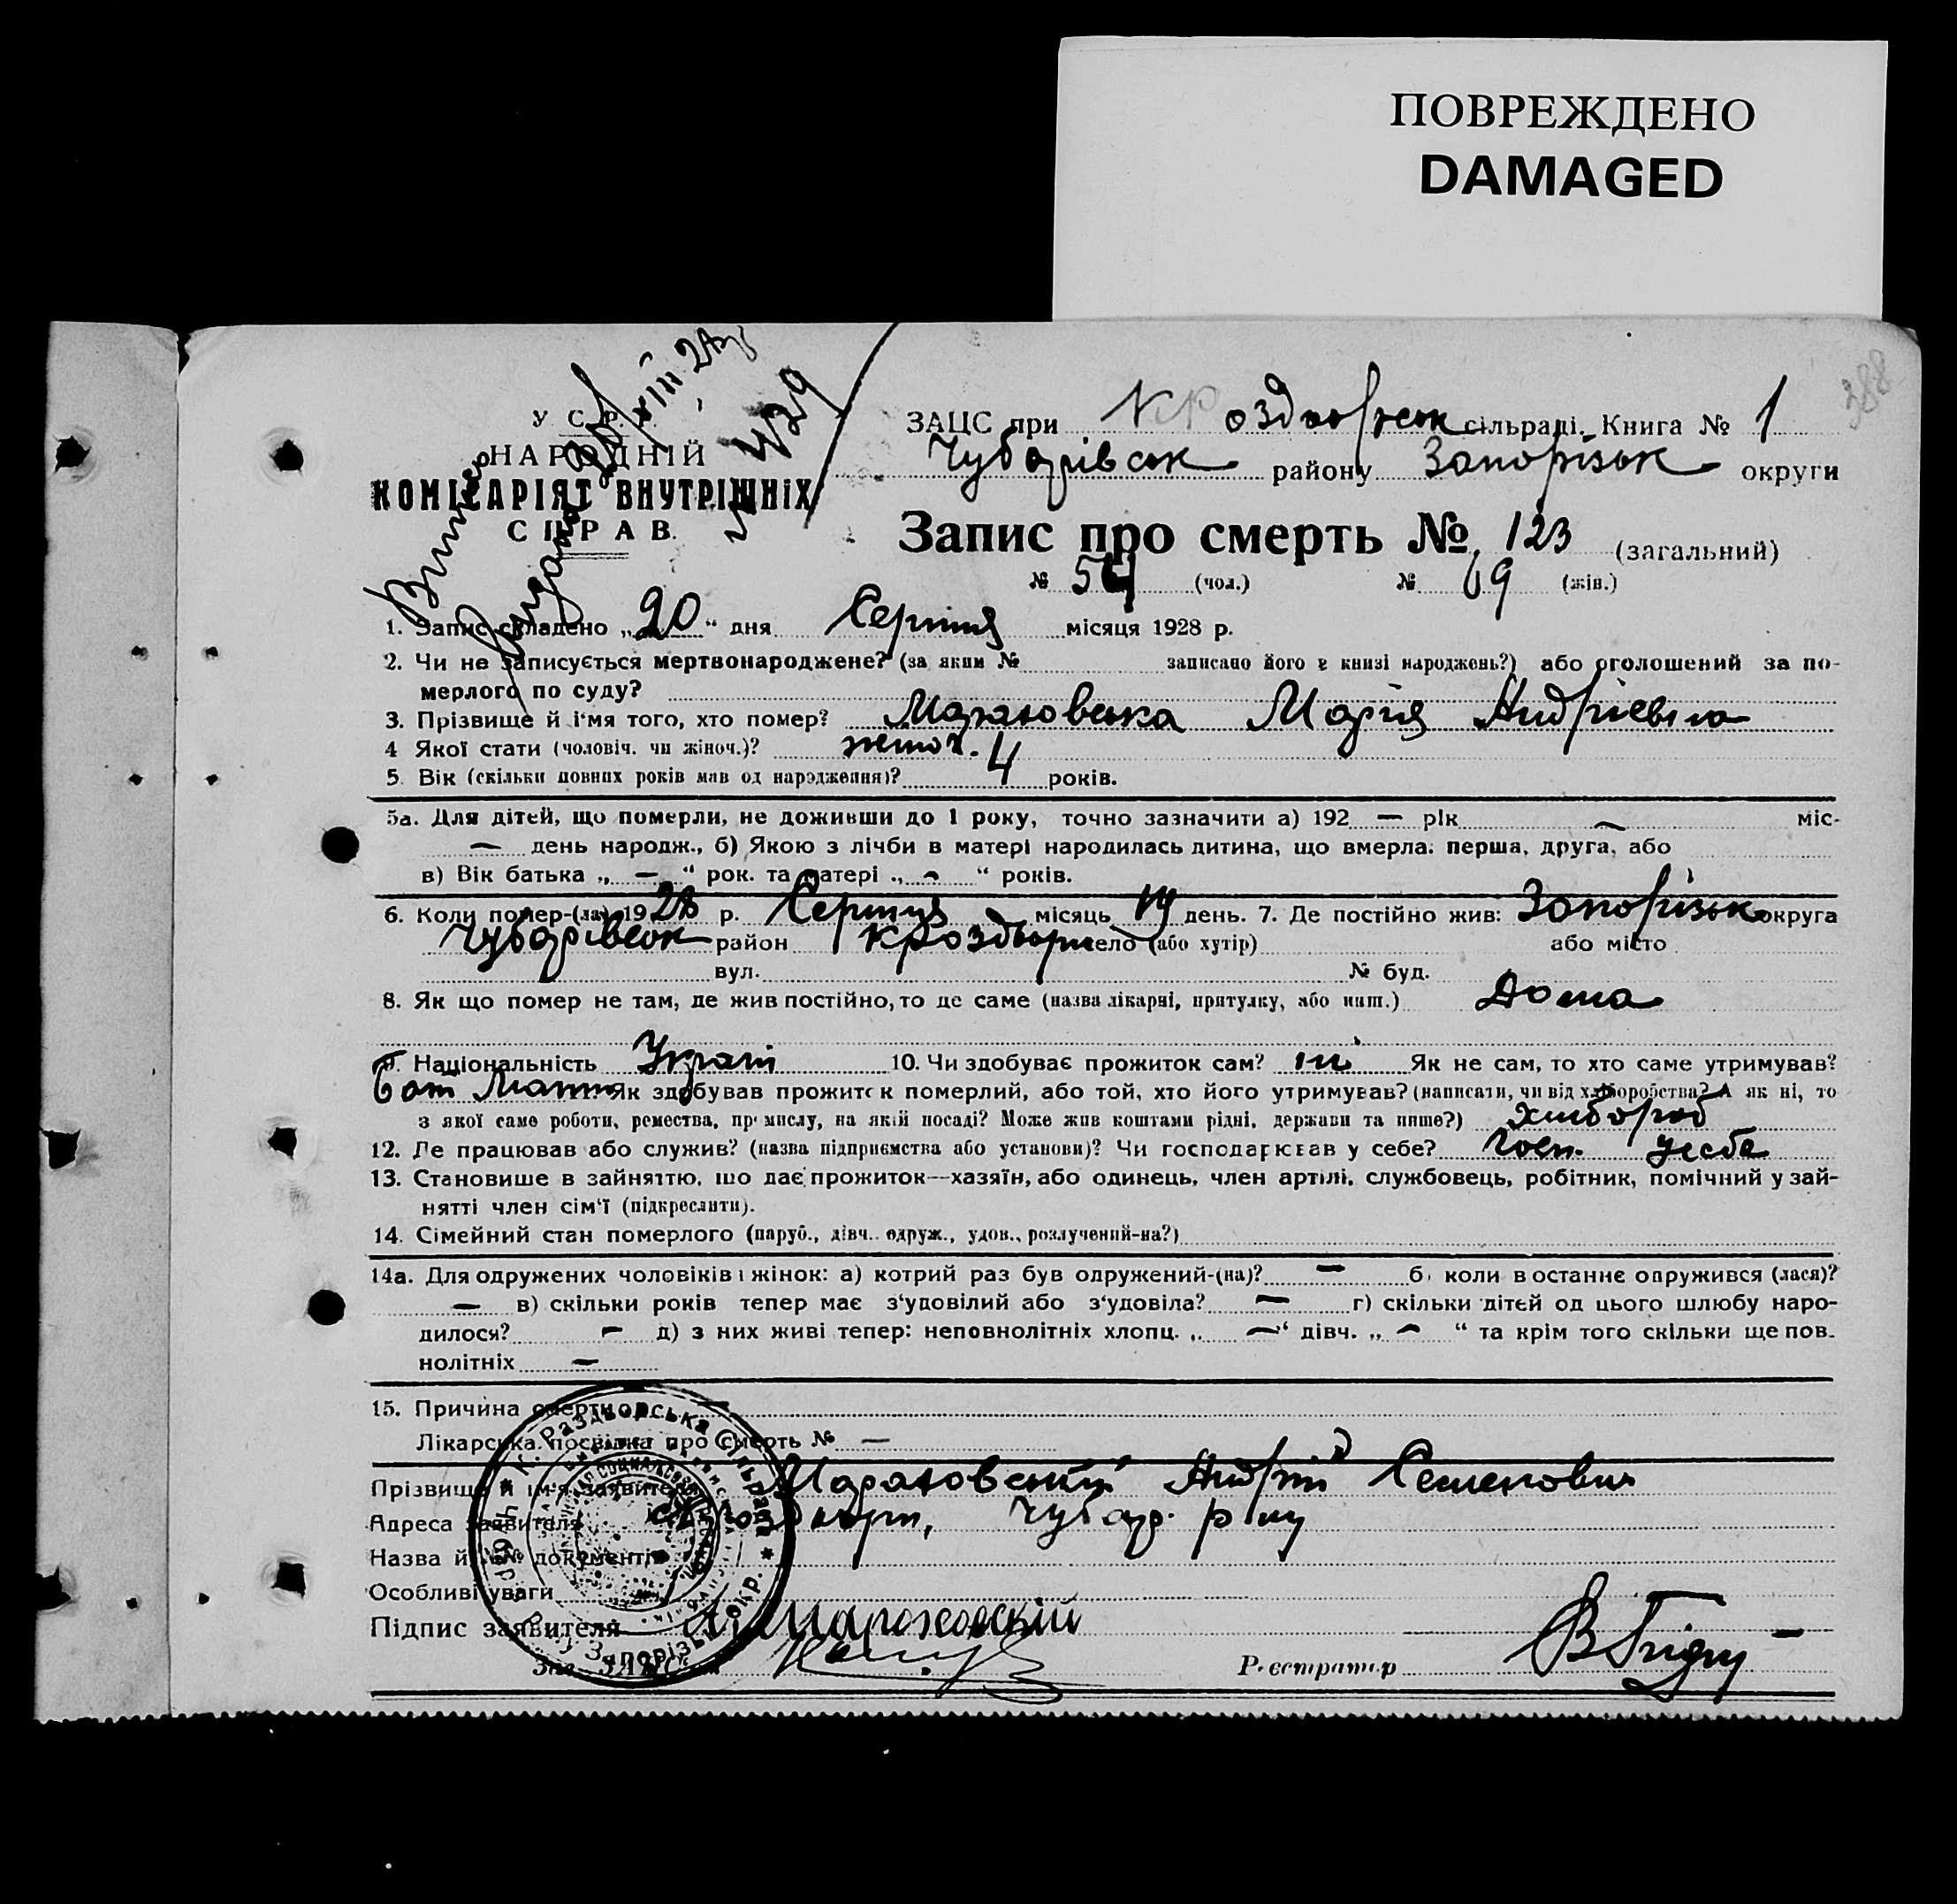 ПОВРЕЖДЕНО
DAMAGED
388
У. С. Р. Р.
НАРОДНІЙ
КОМІСАРІЯТ ВНУТРІШНІХ
СПРАВ.
ЗАЦС при сільраді. Книга № 1
Чубарівськ району Запорізьк округи
Запис про смерть № 123 (загальний)
№ 54 (чол.) № 69 (жін.)
1. Запис складено „20“ дня Серпня місяця 1928 р.
2. Чи не записується мертвонароджене? (за яким № записано його в книзі народжень?) або оголошений за по-
мерлого по суду?
3. Прізвище й ім'я того, хто помер? Марія Андріевна
4 Якої стати (чоловіч. чи жіноч.)? жіноч.
5. Вік (скільки повних років мав од народження)? 4 років.
5а. Для дітей, що померли, не доживши до 1 року, точно зазначити а) 192 — рік — міс-
— день народж., б) Якою з лічби в матері народилась дитина, що вмерла: перша, друга, або
в) Вік батька „ — “ рок. та матері „ — “ років.
6. Коли помер-(ла) 1928 р. Серпця місяць 19 день. 7. Де постійно жив: Запорізьк округа
Чубарівськ район село (або хутір) або місто
вул. № буд.
8. Як що помер не там, де жив постійно, то де саме (назва лікарні, притулку, або инш.) Дома
9. Національність Украі 10. Чи здобуває прожиток сам? ні Як не сам, то хто саме утримував?
Бат Як здобував прожиток померлий, або той, хто його утримував? (написати, чи від хліборобства? А як ні, то
з якої саме роботи, ремества, промислу, на якій посаді? Може жив коштами рідні, держави та инше?) хлібороб
12. Де працював або служив? (назва підприємства або установи)? Чи господарював у себе? госп. у себе
13. Становище в зайняттю, що дає прожиток—хазяїн, або одинець, член артілі, службовець, робітник, помічний у зай-
нятті член сім'ї (підкреслити).
14. Сімейний стан померлого (паруб., дівч., одруж., удов., розлучений-на?)
14а. Для одружених чоловіків і жінок: а) котрий раз був одружений-(на)? — б) коли в останнє одружився (лася)?
— в) скільки років тепер має з'удовілий або з'удовіла? — г) скільки дітей од цього шлюбу наро-
дилося? — д) з них живі тепер: неповнолітніх хлопц. „ — “ дівч. „ — “ та крім того скільки ще пов-
нолітніх —
15. Причина смерти —
Лікарська посвідка про смерть № —
Прізвище й ім'я заявителя Андрій Семенович
Адреса заявителя Чубар. р-ну
Назва й №№ документів
Особливі уваги
Підпис заявителя
Зав. ЗАЦС Реєстратор
К. Раздьорська Сільрада Запорізьк. окр.